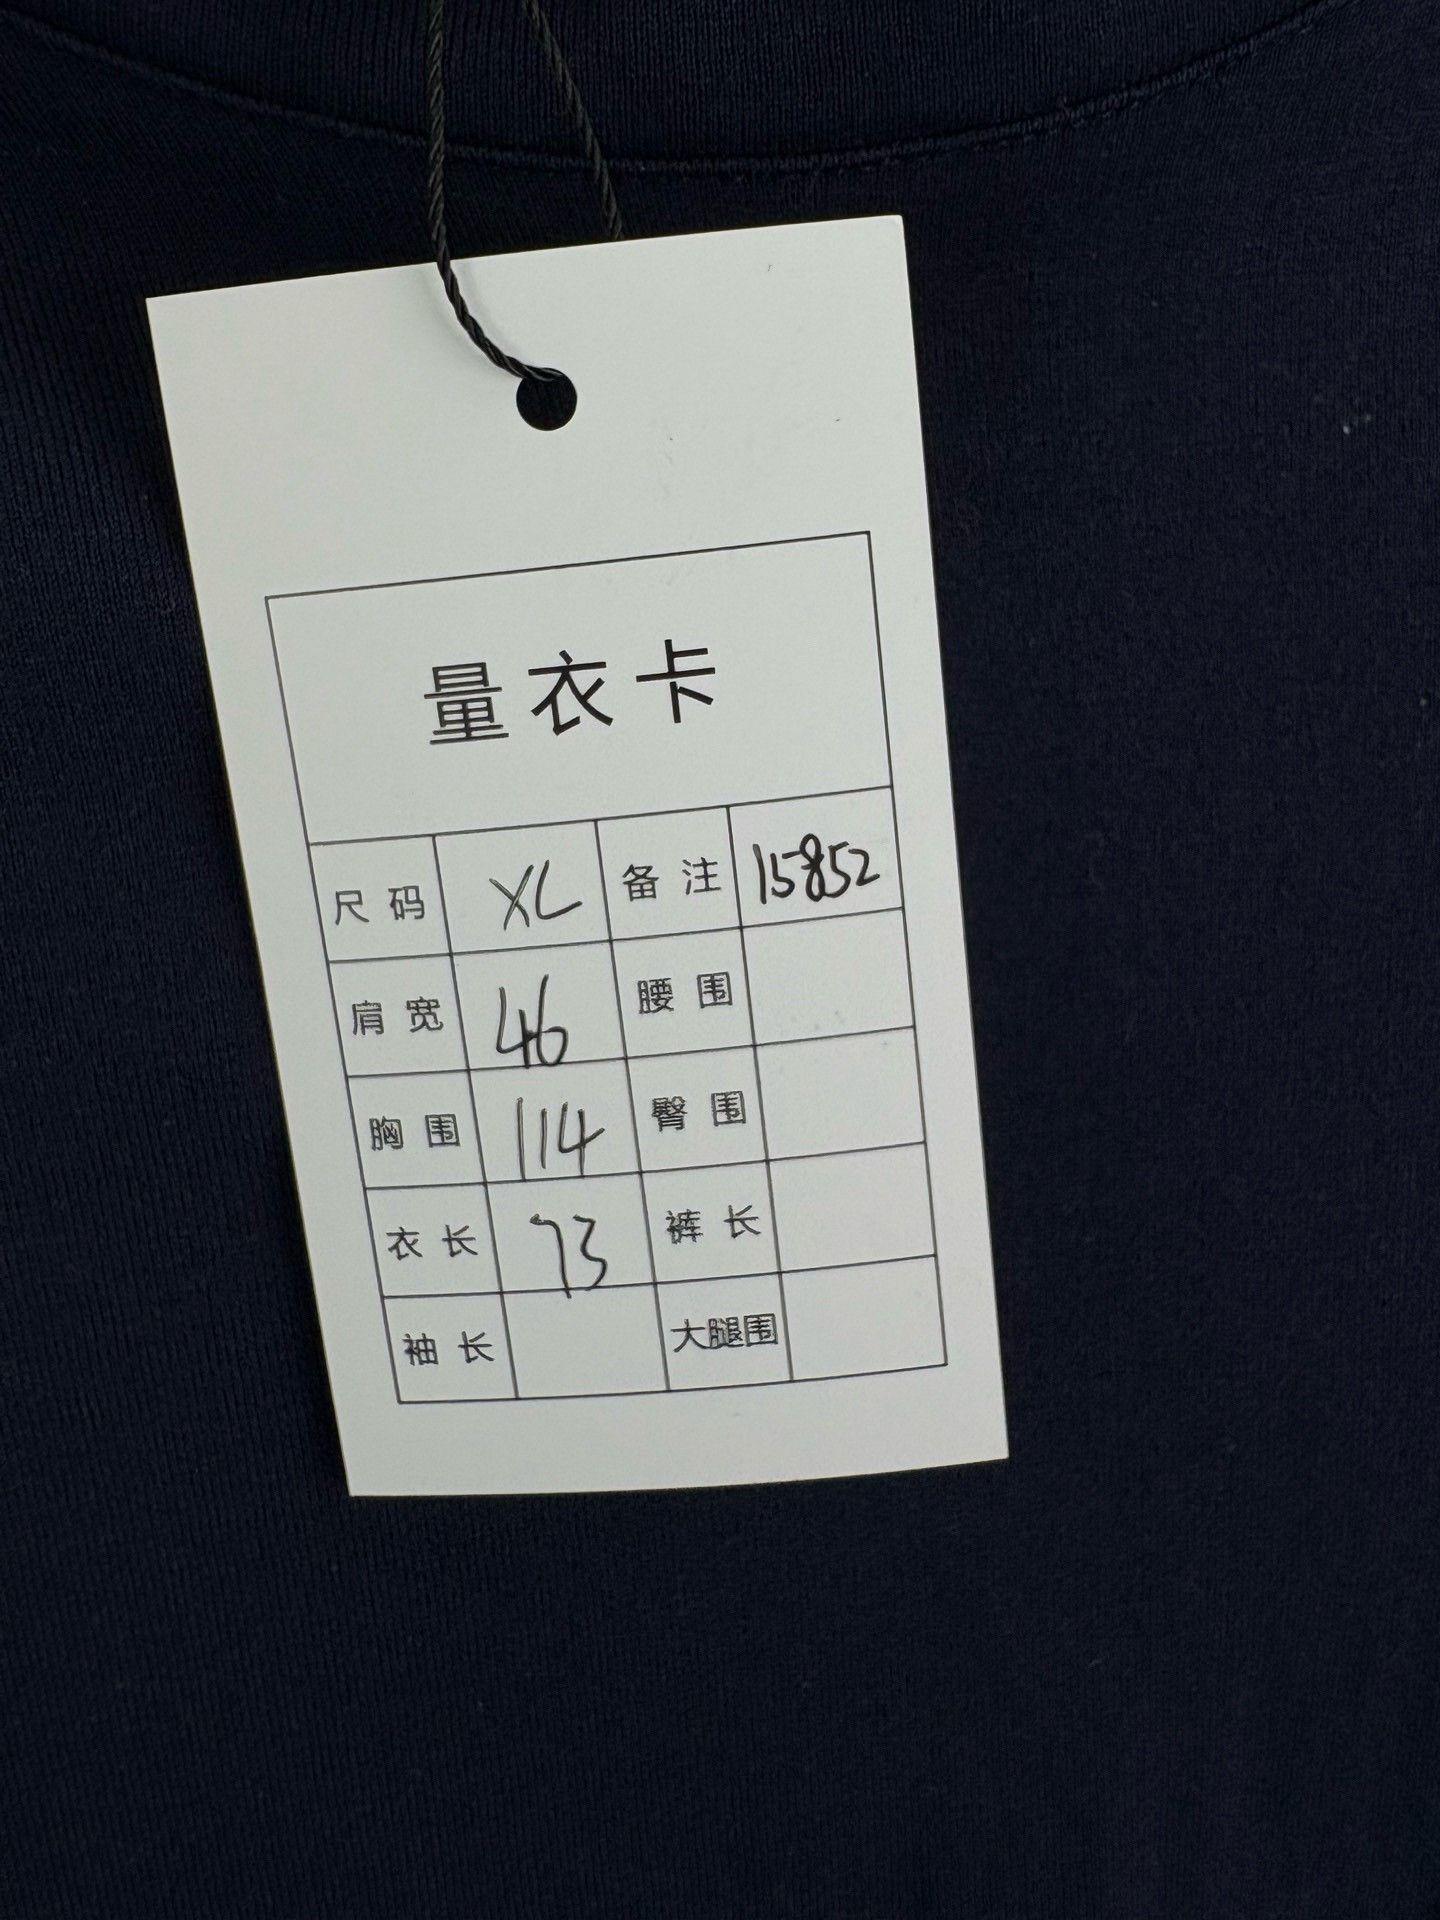 量衣卡
尺码 XL 备注 15852
肩宽 46 腰围
胸围 114 臀围
衣长 73 裤长
袖长 大腿围